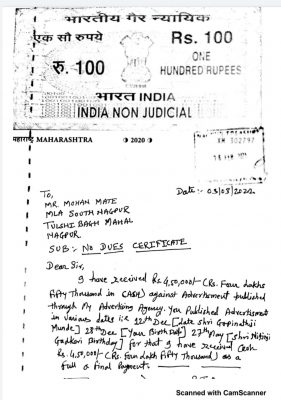 भारतीय गैर न्यायिक
एक सौ रुपये
Rs. 100
रु. 100
ONE
HUNDRED RUPEES
भारत INDIA
INDIA NON JUDICIAL
महाराष्ट्र MAHARASHTRA
2020
XH 302797
To,
Date:- 03/03/2022
MR MOHAN MATE
MLA SOUTH NAGPUR
TULSHI BAGH MAHAL
NAGPUR.
SUB:- NO DUES CERIFICATE
Dear Sir,
I have received Rs. 4,50,000/- (Rs. Four lakhs
Fifty Thousand in CASH) against Advertisment published
through My Advertising Agency. You Published Advertisment
in various dates i.e. 12th Dec [date shri Gopinathji
Munde] 28th Dec [Your Birth Date] 27th May [shri Nitinji
Gadkari Birthday] for that I have received Cash
Rs. 4,50,000/- (Rs. Four lakh fifty Thousand) as a
full & final Payment.
Scanned with CamScanner